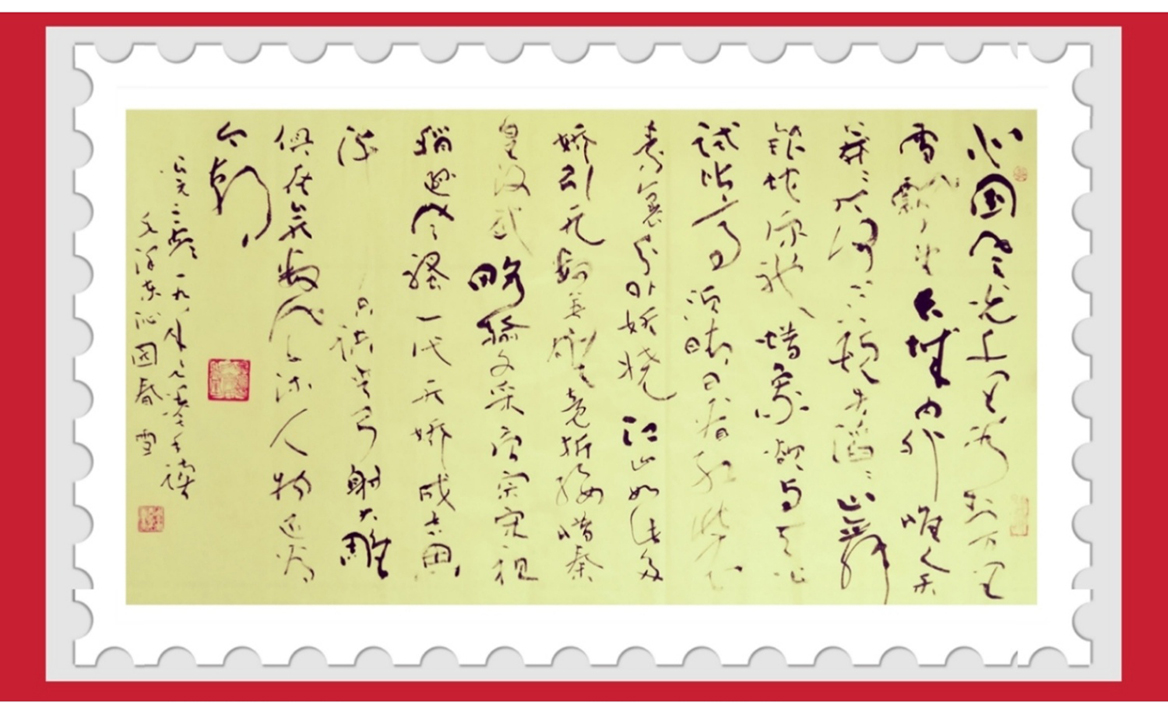 北国风光千里冰封万里
雪飘望长城内外唯余
莽莽大河上下顿失滔滔山舞
银蛇原驰蜡象欲与天公
试比高须晴日看红装
素裹分外妖娆江山如此多
娇引无数英雄竞折腰惜秦
皇汉武略输文采唐宗宋祖
稍逊风骚一代天骄成吉思
汗只识弯弓射大雕
俱往矣数风流人物还看
今朝
公元二零一九年
毛泽东沁园春雪